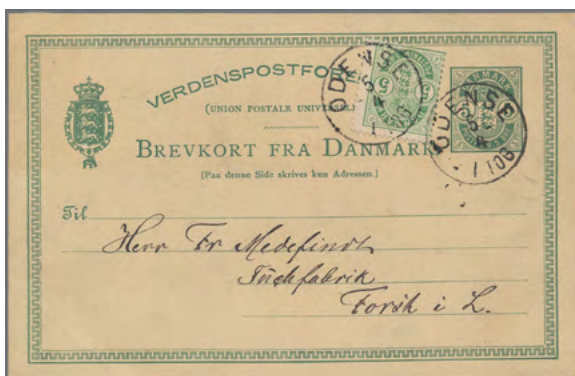 VERDENSPOSTFO
(UNION POSTALE UNIVER
BREVKORT FRA DANMARK
(Paa denne Side skrives kun Adressen.)
DANMARK
5 5
ODENSE
ODENSE
Til
Herr Fr Medefindt
Tuchfabrik
Forst i L.